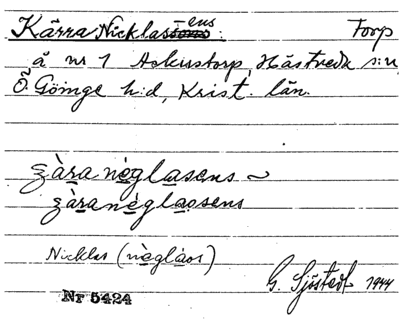 Kärra Nicklassens: Torp
å nr 1 Askustorp, Hästveda s:n,
Ö. Göinge h:d, Krist. län.
zàra nèglasens ~
zàra nèglaosens
Nicklas (nèglàos)
G. Sjöstedt 1944
Nr 5424